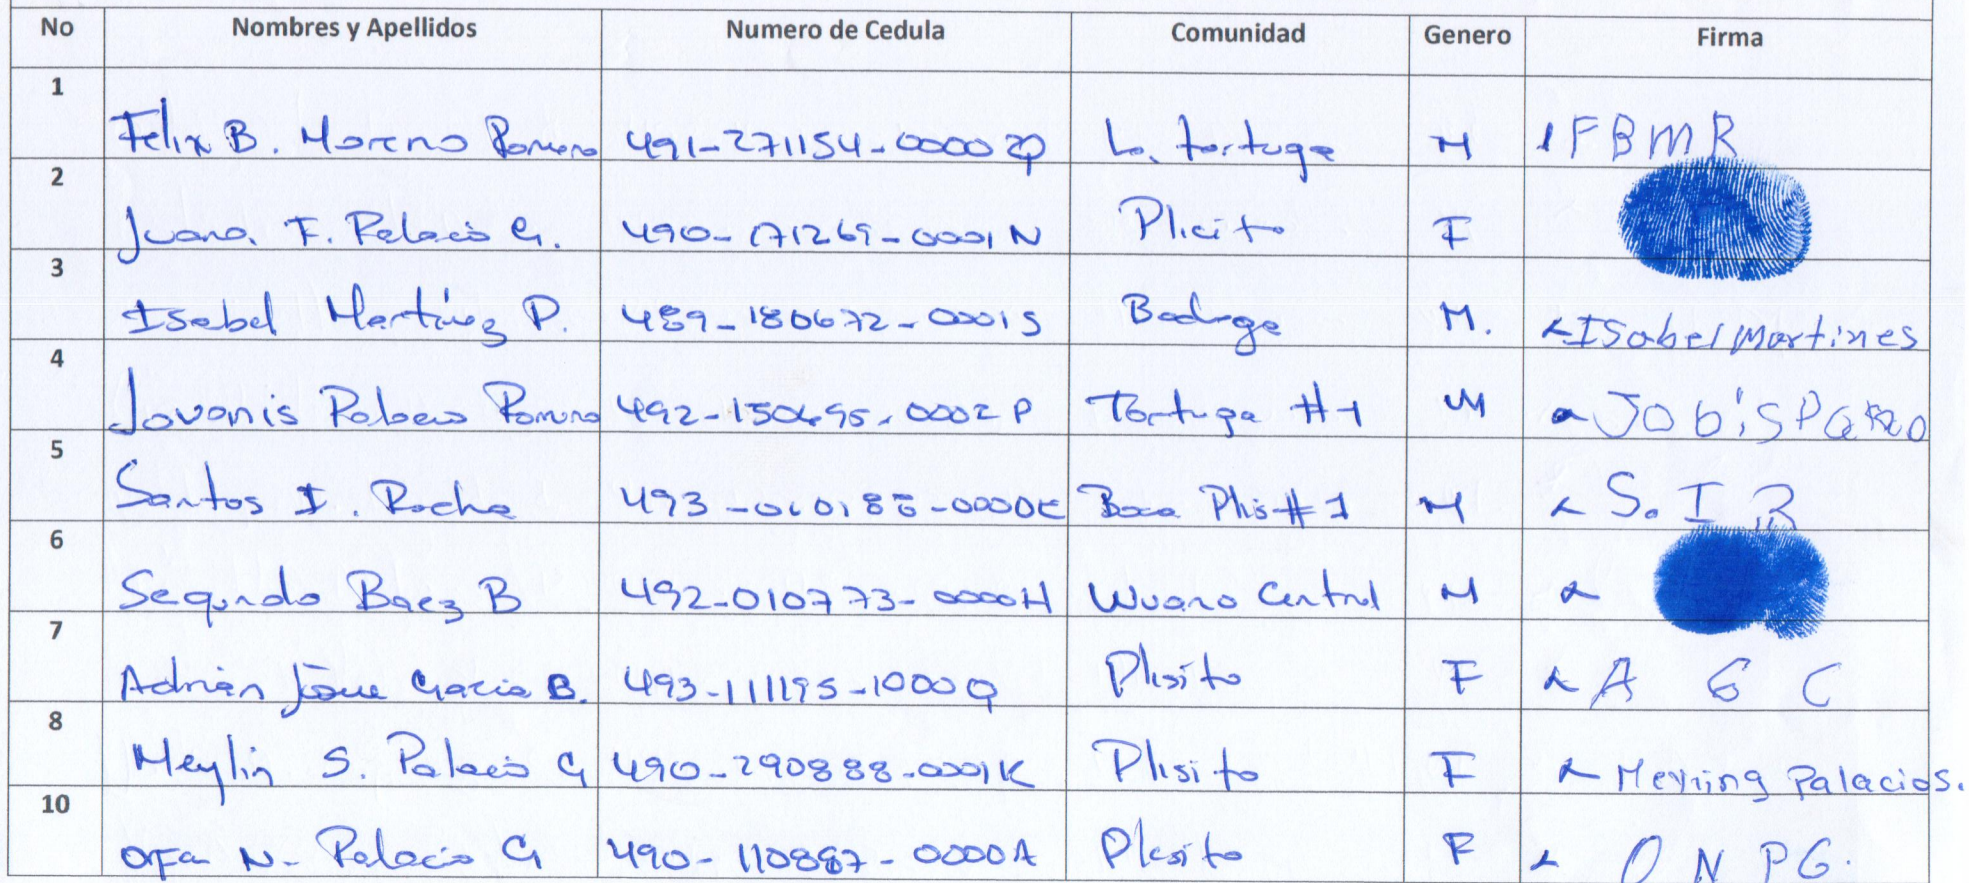 No Nombres y Apellidos Numero de Cedula Comunidad Genero Firma
1 Felix B. Moreno Romero 491-271154-0000 La tortuga M FBMR
2 Juana. F. Palacio G. 490-171269-0001N Plicito F
3 Isabel Martínez P. 489-180672-0001S Bodega M. Isabel Martines
4 Jovanis Palacio Romero 492-150695-0002P Tortuga #1 M
5 Santos I. Rocha 493-010188-0000E Boca Plis #1 M S. I R
6 Segundo Baez B 492-010773-0000H Wuano Central M
7 Adrian Garcia B. 493-111195-1000Q Plisito F A G C
8 Meylin S. Palacio G 490-290888-0001K Plisito F Meyling Palacios.
10 Orfa N- Palacio G 490-110887-0000A Plisito F O N P G.